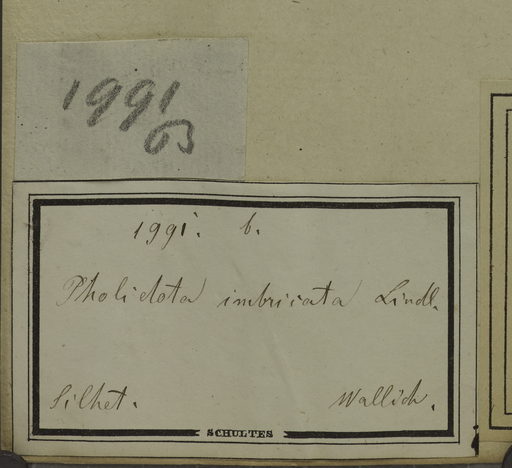 1991
B
1991. b.
Pholidota imbricata Lindl.
Silhet. Wallich.
SCHULTES